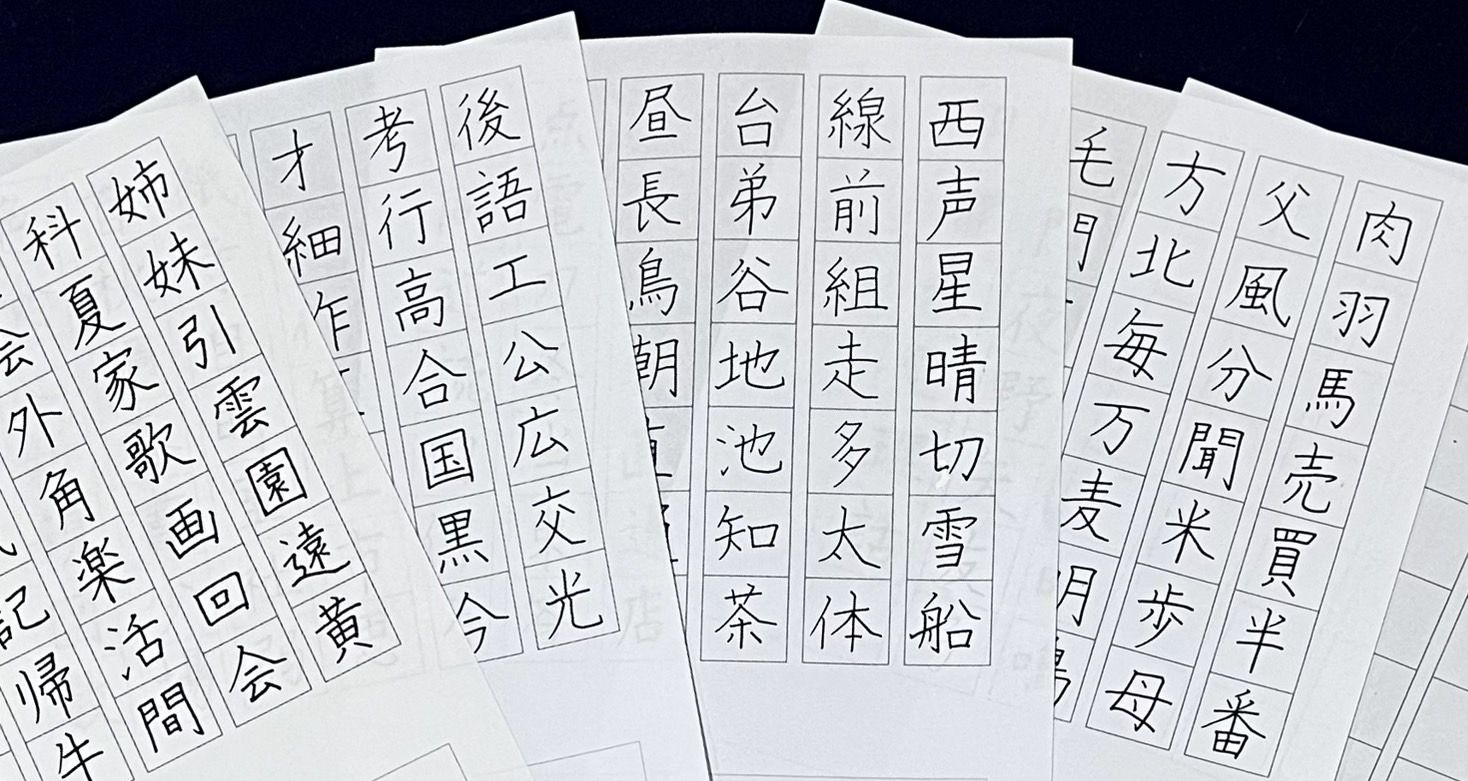 姉妹引雲園遠黄
科夏家歌画回会
会外角楽活間
記帰牛
後語工公広交光
考行高合国黒今
才細作
西声星晴切雪船
線前組走多太体
台弟谷地池知茶
昼長鳥朝直
肉羽馬売買半番
父風分聞米歩母
方北毎万麦明鳴
毛門